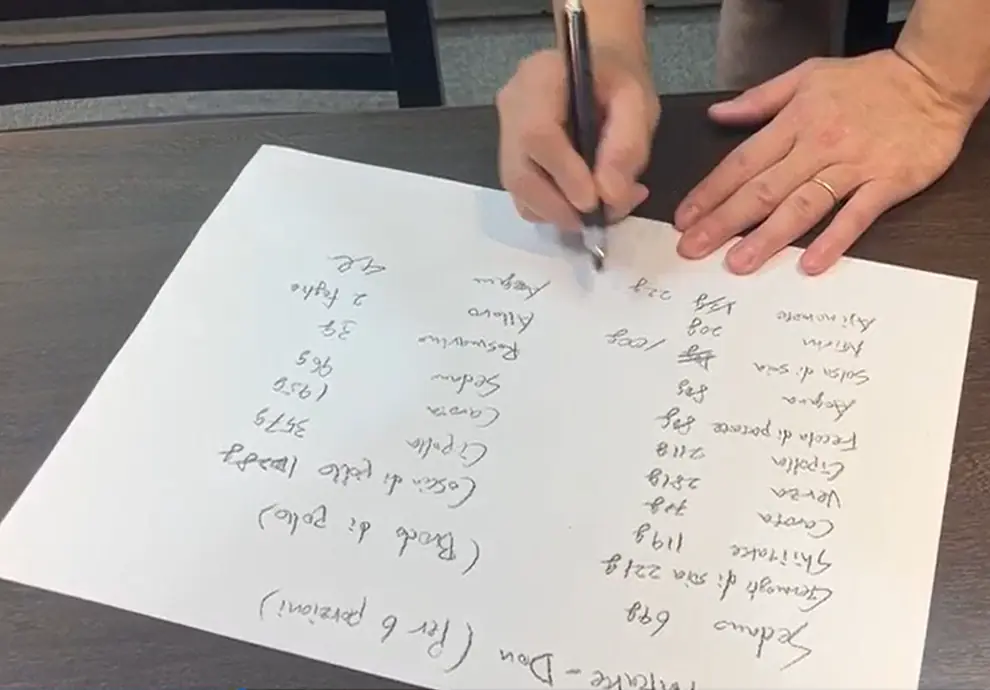 - Don (Per 6 porzioni)
Sedano 69g
Germogli di soia 221g
Shiitake 119g
Carota
Verza 281g
Cipolla 211g
Fecola di patate 80g
Acqua 80g
Salsa di soia 100g
Mirin 20g
Ajinomoto 22g
(Brodo di pollo)
Coscia di pollo
Cipolla 357g
Carota 195g
Sedano 96g
Rosmarino 3g
Alloro 2 foglie
Acqua 4l